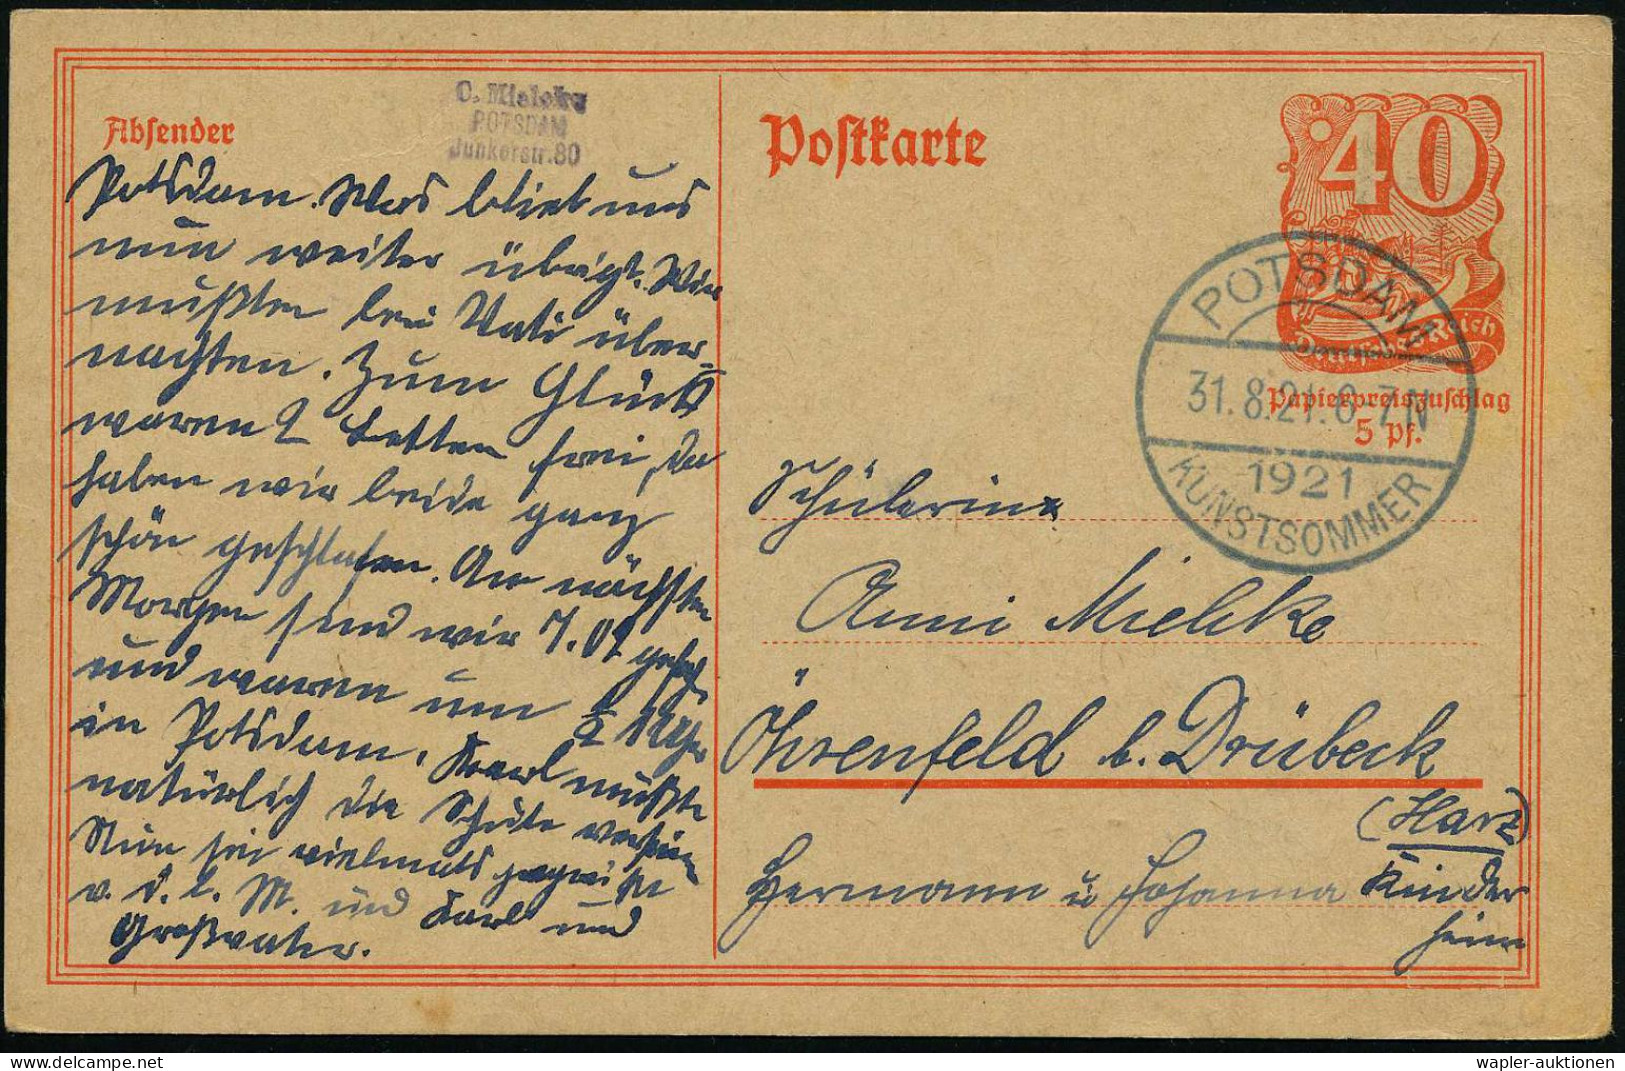 Absender
C. Mielcke
POTSDAM
Junkerstr. 80
Potsdam. Was blieb uns
nun weiter übrigt. Wir
mußten bei Vati über-
nachten. Zum Glück
waren 2 Betten frei, da
haben wir beide ganz
schön geschlafen. Am nächsten
Morgen sind wir 7.01 gefah.
und waren um 1/2 11 Uhr
in Potsdam. Karl mußte
natürlich die Schule versäumen
Nun sei vielmals gegrüßt
v. d. l. M. und Karl und
Großvater.
Postkarte
40
Deutsches Reich
Papierpreiszuschlag
5 Pf.
POTSDAM
31.8.21. 6-7 N
1921
KUNSTSOMMER
Schülerin
Anni Mielcke
Öhrenfeld b. Drübeck
(Harz)
Hermann u Johanna Kinder
heim
wapler-auktionen